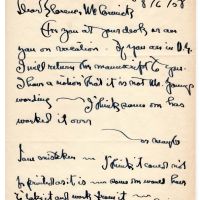 8/6/58
Dear Clarence Mc Cormick
Are you at your desk or are
you on vacation. If you are in D.C.
I will return the manuscript to you.
I have a notion that it is not Mr. Young's
working — I think some one has
worked it over
or maybe
I am mistaken I think it could not
be printed as it is — some one would have
to take it and work from it